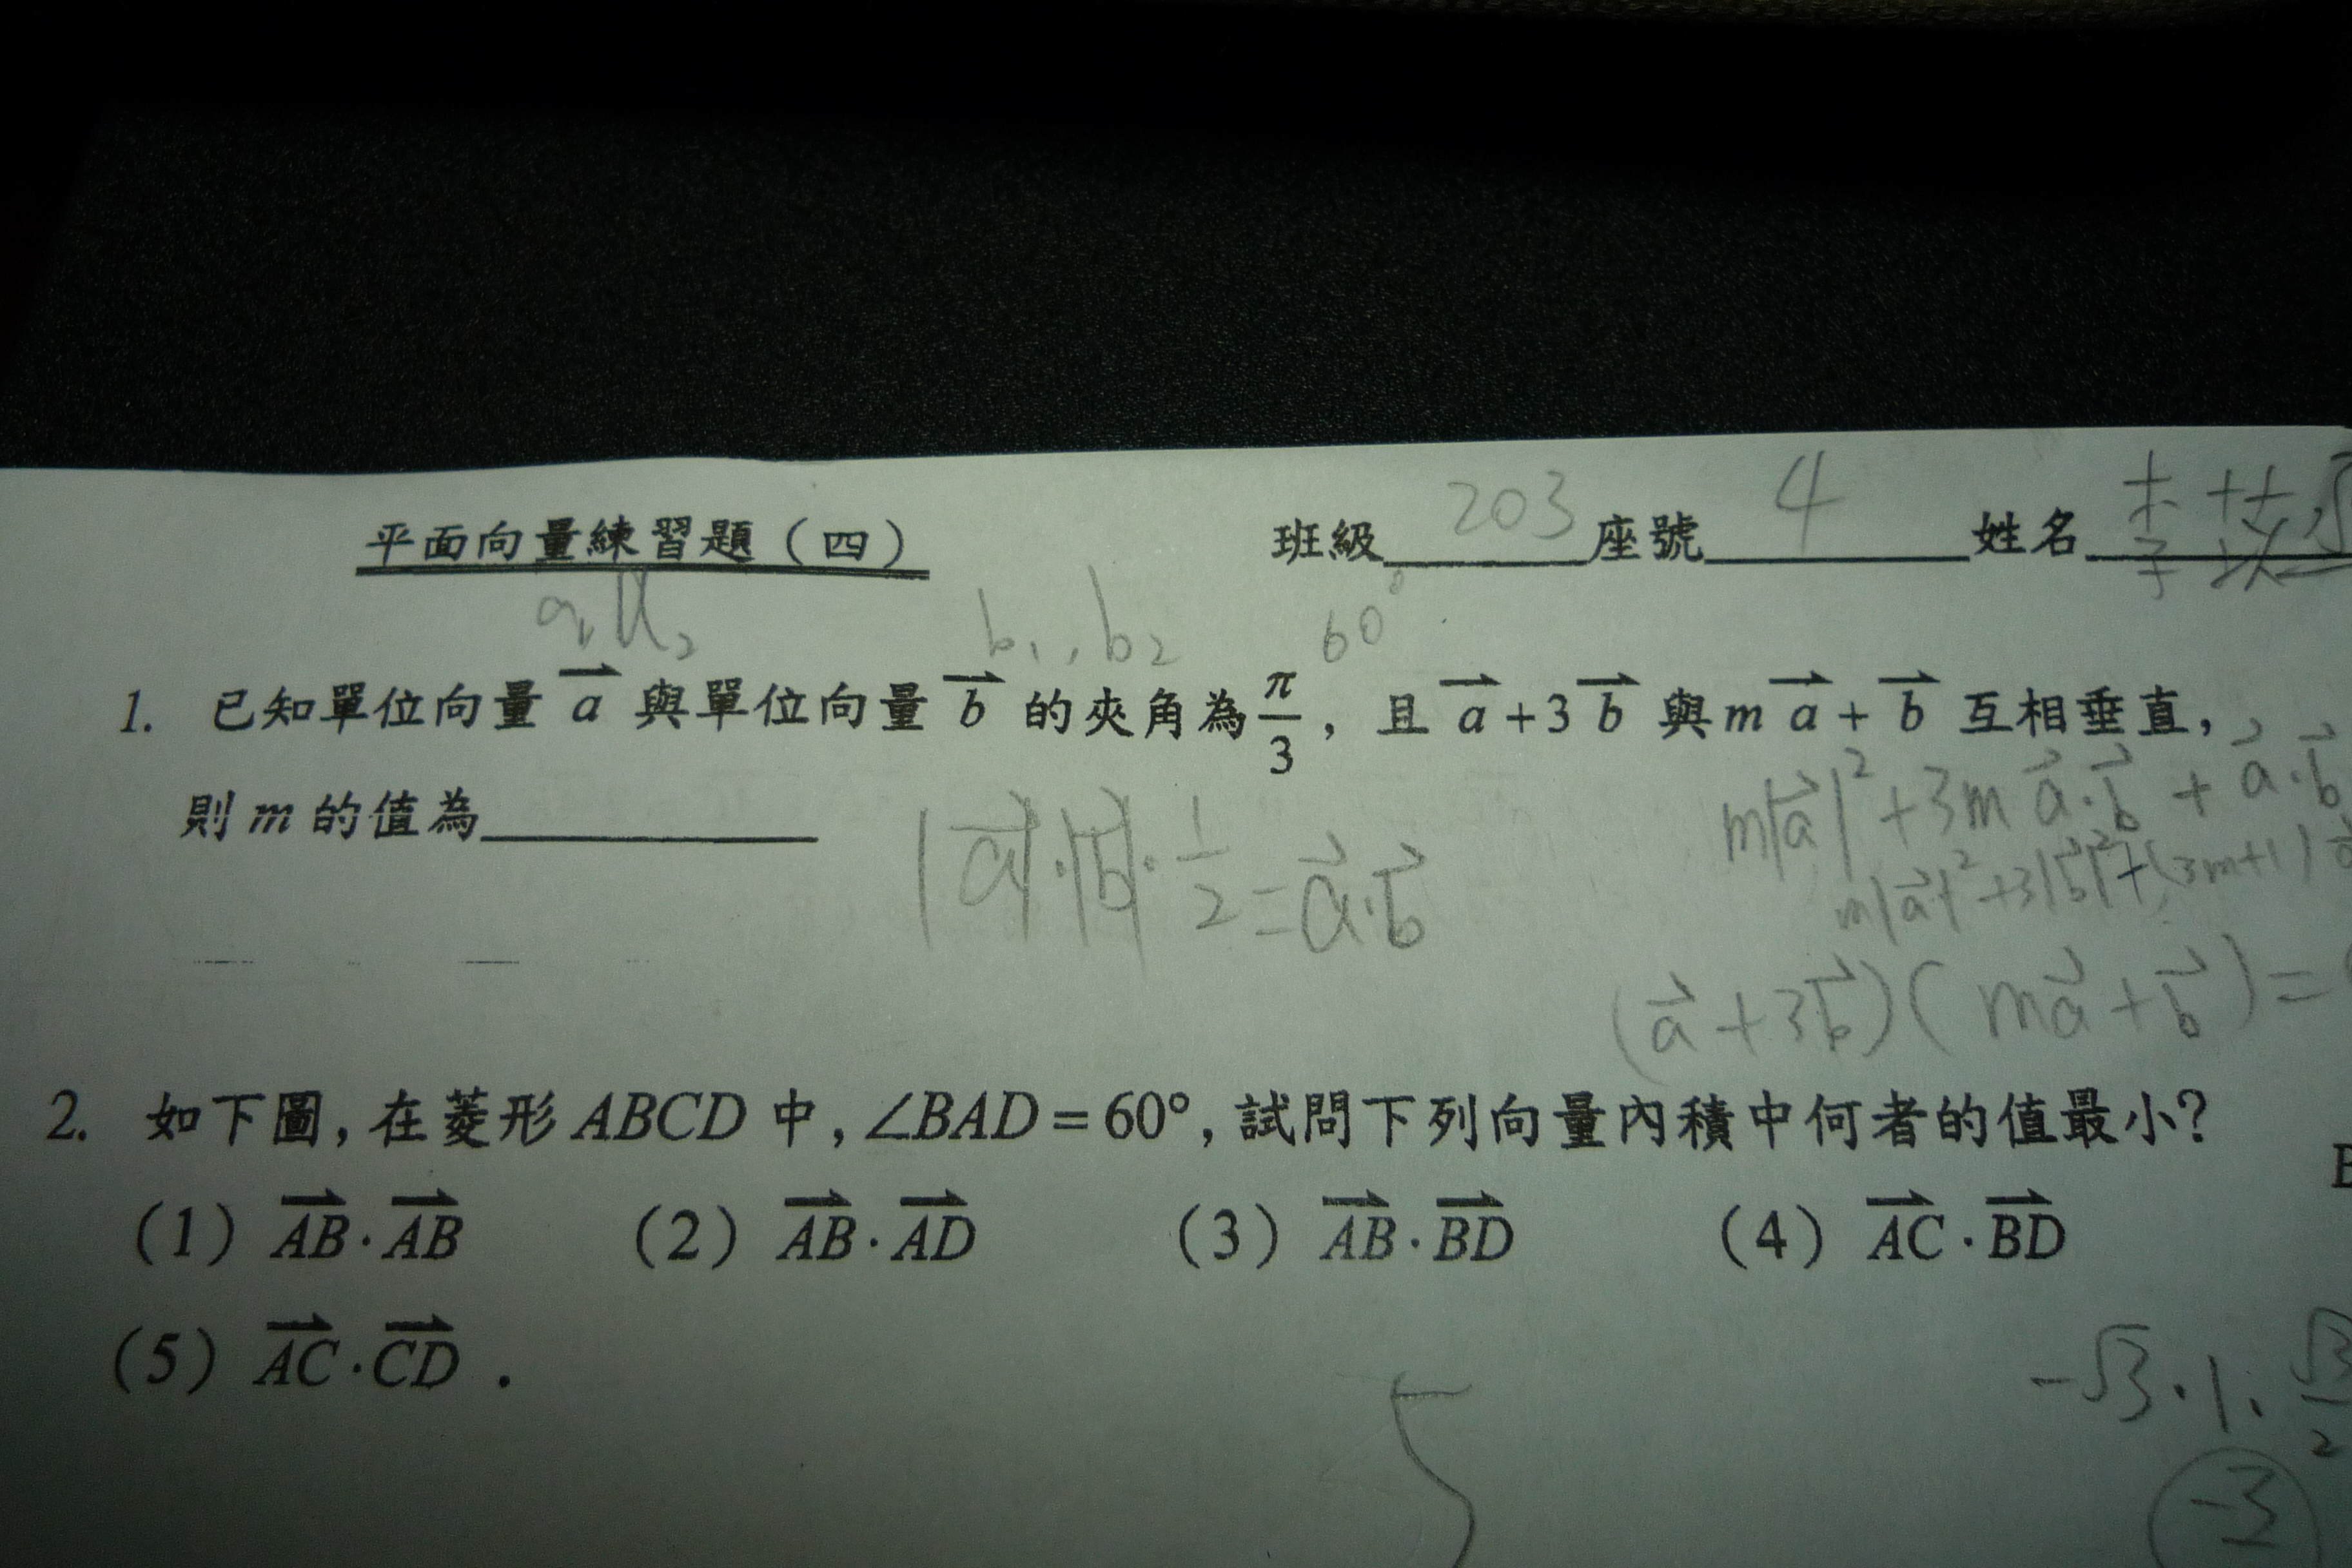 平面向量練習題（四） 班級 203 座號 4 姓名 李
a₁, a₂ b₁, b₂ 60°
1. 已知單位向量 a⃗ 與單位向量 b⃗ 的夾角為 π/3，且 a⃗+3b⃗ 與 m a⃗+b⃗ 互相垂直，
則 m 的值為
m|a⃗|²+3m a⃗·b⃗ + a⃗·b⃗
|a⃗|·|b⃗|·1/2=a⃗·b⃗
m|a⃗|²+3|b⃗|²+(3m+1)
(a⃗+3b⃗)(ma⃗+b⃗)=
2. 如下圖，在菱形 ABCD 中，∠BAD=60°，試問下列向量內積中何者的值最小？
(1) AB⃗·AB⃗ (2) AB⃗·AD⃗ (3) AB⃗·BD⃗ (4) AC⃗·BD⃗
(5) AC⃗·CD⃗．
-√3·1·√3/2
5